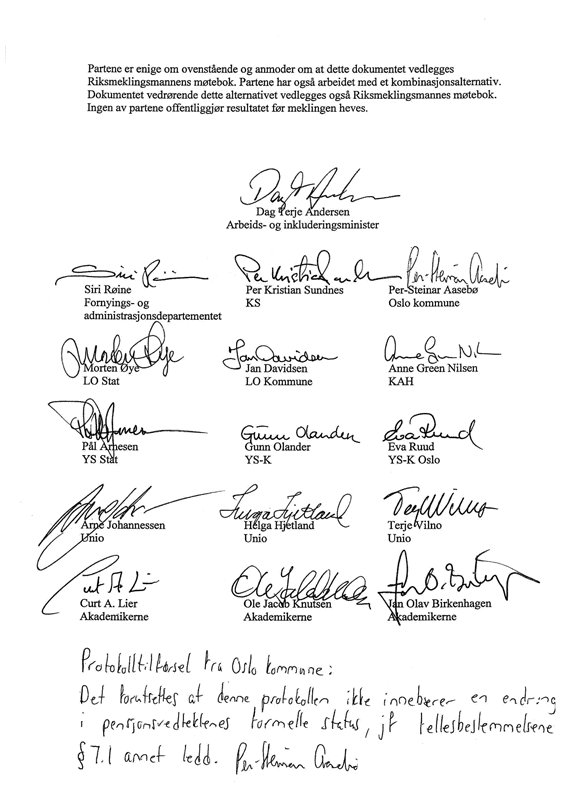 Partene er enige om ovenstående og anmoder om at dette dokumentet vedlegges
Riksmeklingsmannens møtebok. Partene har også arbeidet med et kombinasjonsalternativ.
Dokumentet vedrørende dette alternativet vedlegges også Riksmeklingsmannes møtebok.
Ingen av partene offentliggjør resultatet før meklingen heves.
Dag Terje Andersen
Arbeids- og inkluderingsminister
Siri Røine
Siri Røine
Fornyings- og
administrasjonsdepartementet
Per Kristian Sundnes
Per Kristian Sundnes
KS
Per-Steinar Aasebø
Per-Steinar Aasebø
Oslo kommune
Morten Øye
Morten Øye
LO Stat
Jan Davidsen
Jan Davidsen
LO Kommune
Anne Green Nilsen
KAH
Pål Arnesen
YS Stat
Gunn Olander
Gunn Olander
YS-K
Eva Ruud
Eva Ruud
YS-K Oslo
Arne Johannessen
Unio
Helga Hjetland
Helga Hjetland
Unio
Terje Vilno
Unio
Curt A. Lier
Curt A. Lier
Akademikerne
Ole Jacob Knutsen
Akademikerne
Jan Olav Birkenhagen
Akademikerne
Protokolltilførsel fra Oslo kommune:
Det forutsettes at denne protokollen ikke innebærer en endring
i pensjonsvedtektenes formelle status, jf fellesbestemmelsene
§ 7.1 annet ledd. Per-Steinar Aasebø